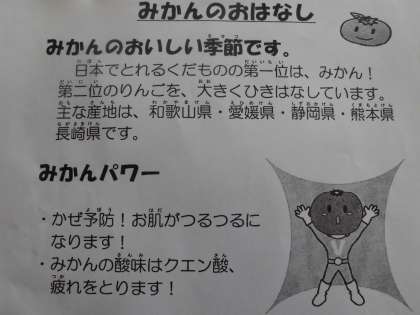 みかんのおはなし
みかんのおいしい季節です。
日本でとれるくだものの第一位は、みかん！
第二位のりんごを、大きくひきはなしています。
主な産地は、和歌山県・愛媛県・静岡県・熊本県
長崎県です。
みかんパワー
・かぜ予防！お肌がつるつるに
なります！
・みかんの酸味はクエン酸、
疲れをとります！